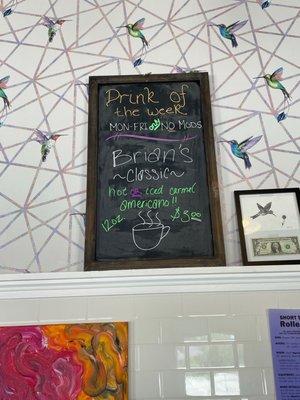 Drink of
the week
MON-FRI NO MODS
Brian's
~Classic~
hot iced carmel
americano!!
12oz $3.00
SHORT
Rolle